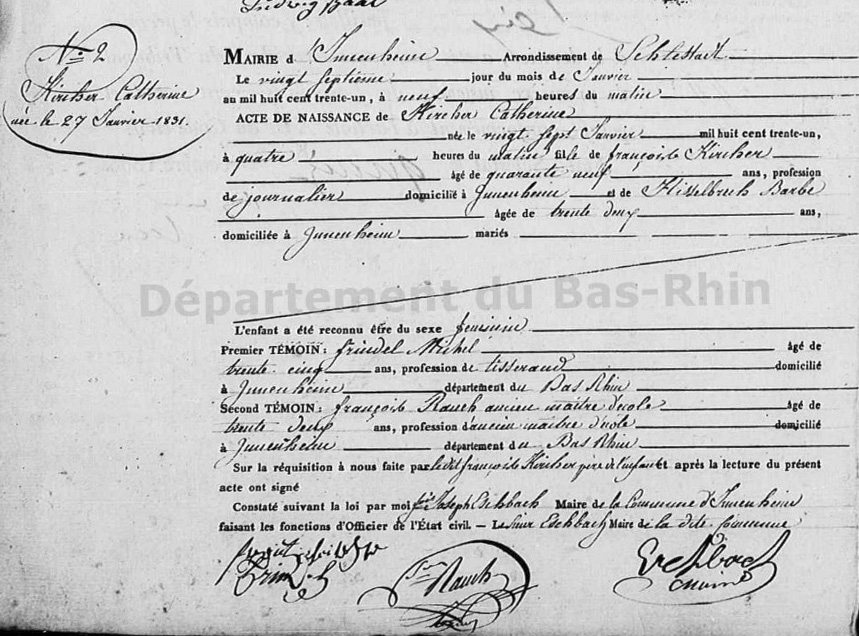 Ludwig Baal
Nro. 2
Kircher Catherine
née le 27 Janvier 1831.
MAIRIE d'Innenheim Arrondissement de Schlestadt
Le vingt septième jour du mois de Janvier
au mil huit cent trente-un, à neuf heures du matin
ACTE DE NAISSANCE de Kircher Catherine
née le vingt sept Janvier mil huit cent trente-un,
à quatre heures du matin fille de françois Kircher
âgé de quarante neuf ans, profession
de journalier domicilié à Innenheim et de Hisselbrech Barbe
âgée de trente deux ans,
domiciliée à Innenheim mariés
Département du Bas-Rhin
L'enfant a été reconnu être du sexe feminin
Premier TÉMOIN: friedel Michel âgé de
trente cinq ans, profession de tisserand domicilié
à Innenheim département du Bas Rhin
Second TÉMOIN: françois Rauch ancien maitre d'ecole âgé de
trente deux ans, profession d'ancien maitre d'ecole domicilié
à Innenheim département du Bas Rhin
Sur la réquisition à nous faite par ledit françois Kircher père de l'enfant et après la lecture du présent
acte ont signé
Constaté suivant la loi par moi Joseph Eschbach Maire de la Commune d'Innenheim
faisant les fonctions d'Officier de l'État civil. — Le Sieur Eschbach Maire de la dite Commune
Rauch
Eschbach
maire